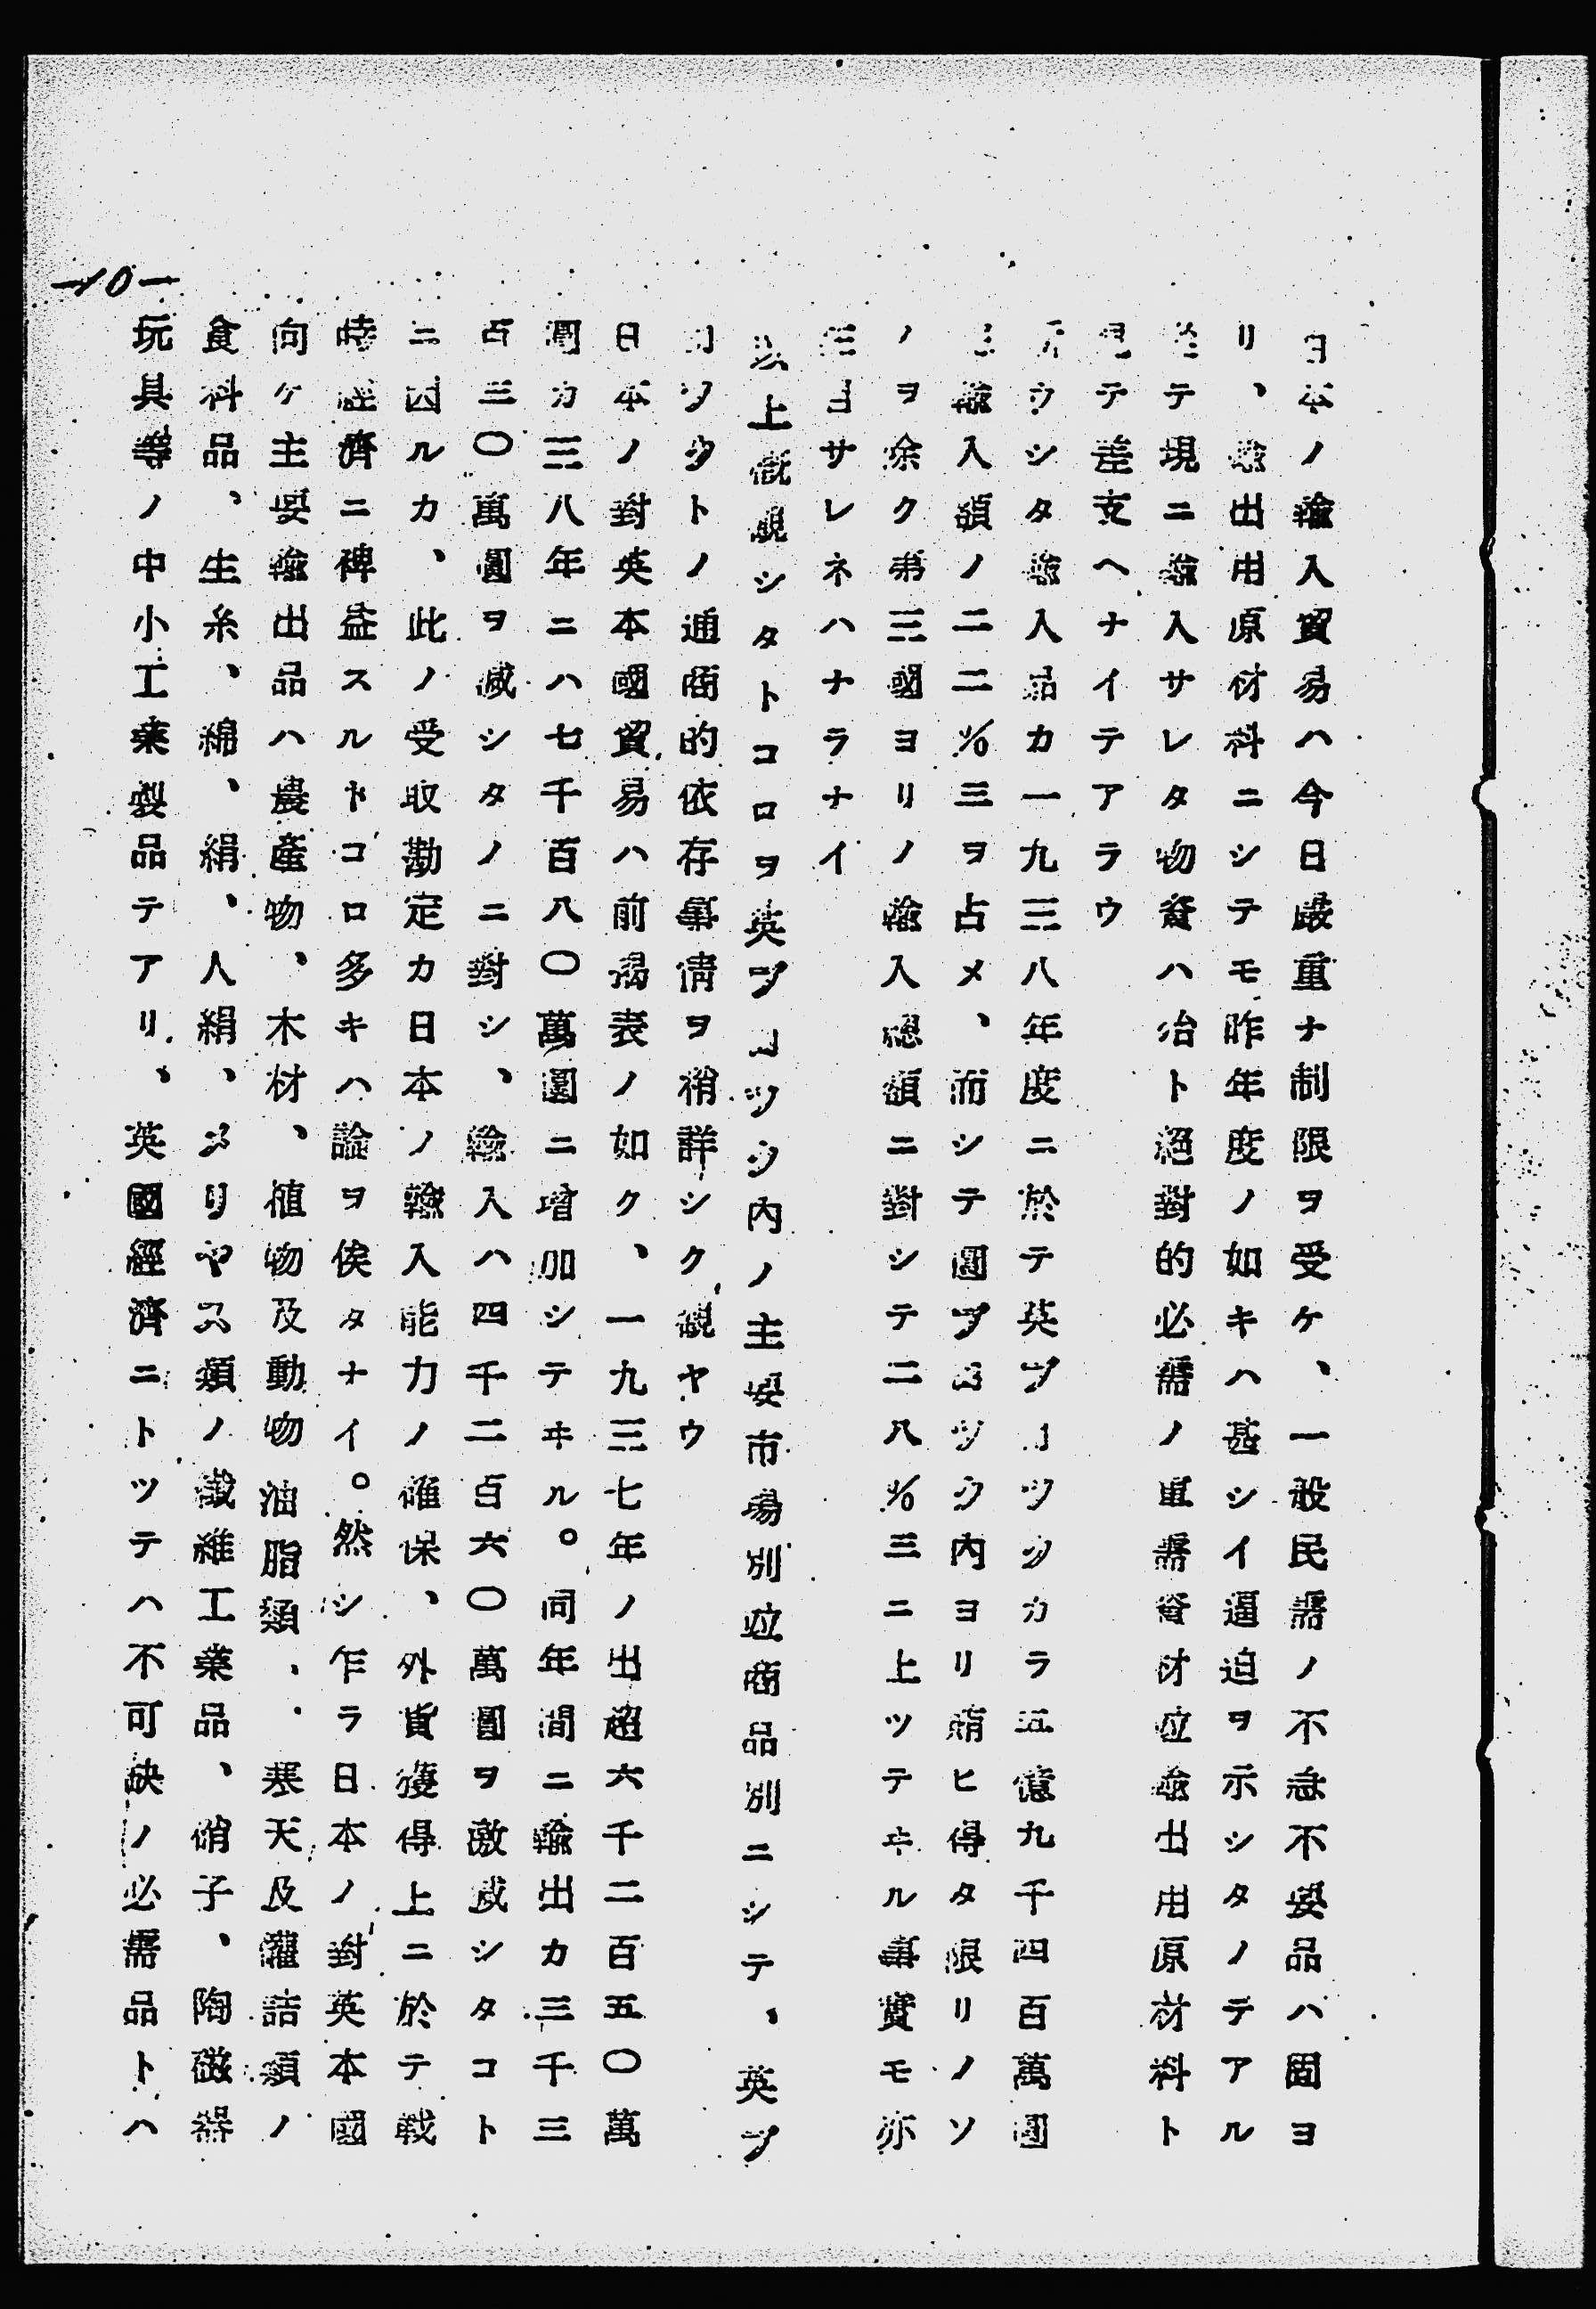 日本ノ輸入貿易ハ今日嚴重ナ制限ヲ受ケ、一般民需ノ不急不要品ハ固ヨ
リ、輸出用原材料ニシテモ昨年度ノ如キハ甚シイ逼迫ヲ示シタノテアル
テ現ニ輸入サレタ物資ハ殆ト絕對的必需ノ軍需資材竝輸出用原材料ト
見テ差支ヘナイテアラウ
ウシタ輸入品カ一九三八年度ニ於テ英ブロツクカラ五億九千四百萬圓
輸入額ノ二二％三ヲ占メ、而シテ圓ブロツク內ヨリ賄ヒ得タ限リノソ
ノヲ除ク第三國ヨリノ輸入總額ニ對シテ二八％三ニ上ツテヰル事實モ亦
注目サレネハナラナイ
以上概觀シタトコロヲ英ブロツク內ノ主要市場別竝商品別ニシテ、英ブ
ロツクトノ通商的依存事情ヲ稍詳シク觀ヤウ
日本ノ對英本國貿易ハ前揭表ノ如ク、一九三七年ノ出超六千二百五〇萬
圓カ三八年ニハ七千百八〇萬圓ニ增加シテヰル。同年間ニ輸出カ三千三
百三〇萬圓ヲ減シタノニ對シ、輸入ハ四千二百六〇萬圓ヲ激減シタコト
ニ因ルカ、此ノ受取勘定カ日本ノ輸入能力ノ確保、外貨獲得上ニ於テ戰
時經濟ニ裨益スルトコロ多キハ論ヲ俟タナイ。然シ乍ラ日本ノ對英本國
向ケ主要輸出品ハ農產物、木材、植物及動物油脂類、、寒天及罐詰類ノ
食料品、生糸、綿、絹、人絹、メリヤス類ノ纖維工業品、硝子、陶磁器
玩具等ノ中小工業製品テアリ、英國經濟ニトツテハ不可缺ノ必需品トハ
—10—